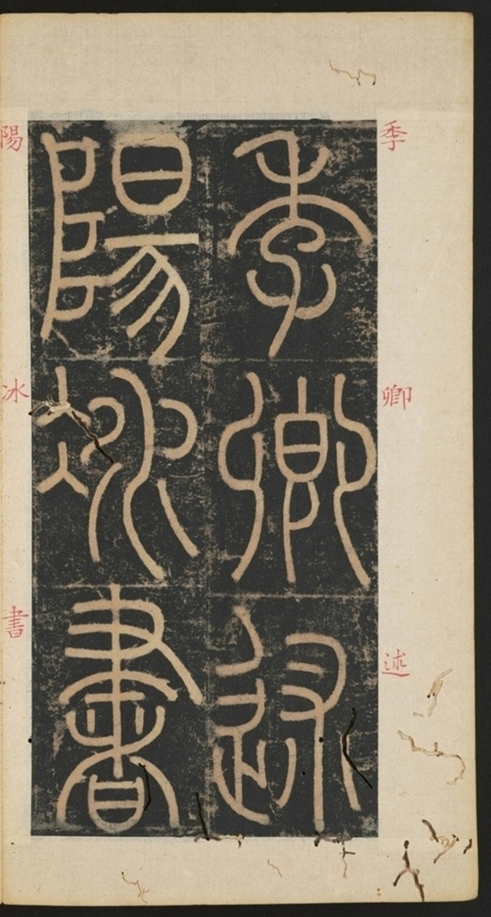 季卿述
陽冰書
季
卿
述
陽
冰
書